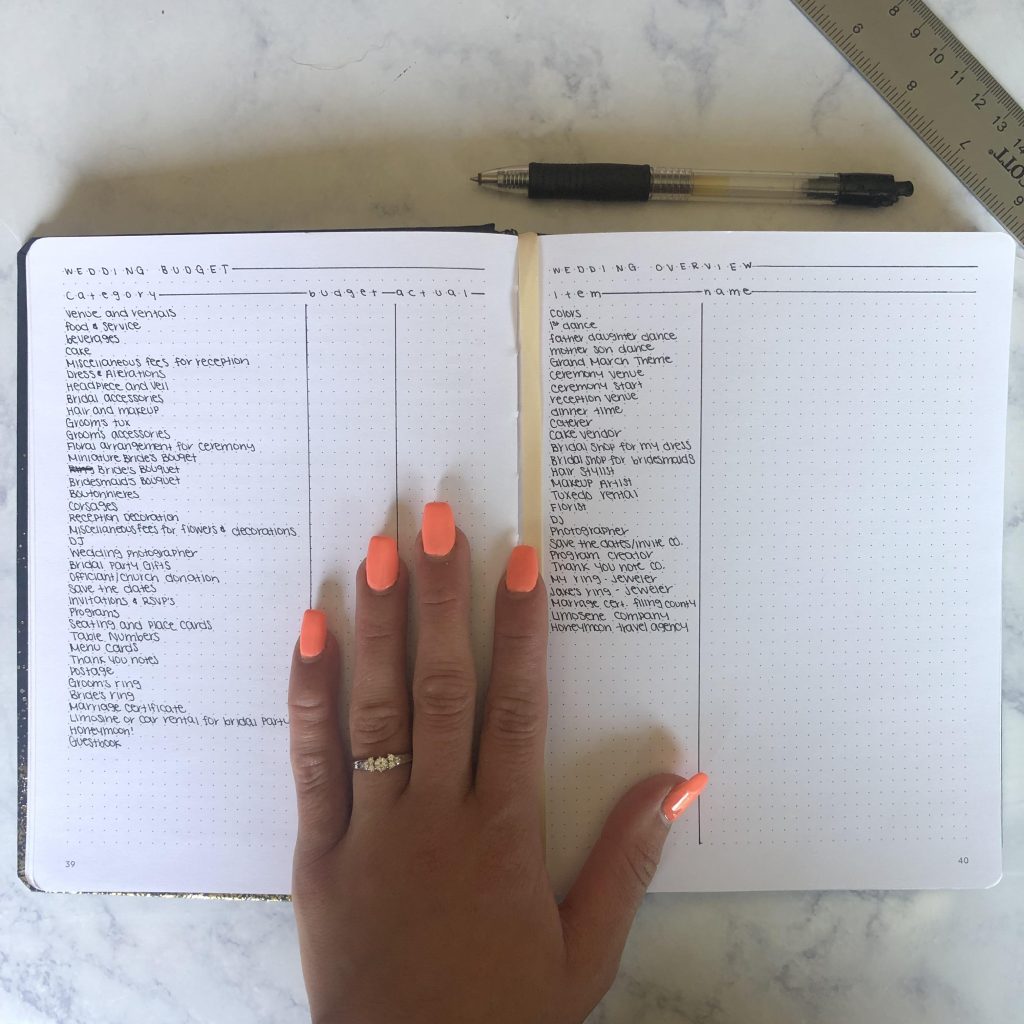 WEDDING BUDGET
Category budget actual
venue and rentals
food & service
beverages
cake
Miscellaneous fees for reception
Dress & Alerations
Headpiece and veil
Bridal accessories
Hair and makeup
Groom's tux
Groom's accessories
Floral arrangement for ceremony
Miniature Bride's Bouget
Bride's Bouquet
Bridesmaid's Bouquet
Boutonnieres
Corsages
Reception Decoration
Miscellaneous fees for flowers & decorations
DJ
Wedding photographer
Bridal Party Gifts
Officiant/church donation
Save the dates
Invitations & RSVP's
Programs
Seating and place cards
Table Numbers
Menu Cards
Thank you notes
Postage
Groom's ring
Bride's ring
Marriage certificate
Limosine or car rental for bridal party
Honeymoon!
Guestbook
39
WEDDING OVERVIEW
item name
colors
1st dance
father daugmer dance
mother son dance
Grand March Theme
ceremony venue
ceremony start
reception venue
dinner time
caterer
cake vendor
Bridal shop for my dress
Bridal shop for bridesmaids
Hair stylist
Makeup Artist
Tuxedo rental
Florist
DJ
Photographer
Save the dates/invite co.
Program creator
Thank you note co.
My ring - jeweler
Jake's ring - jeweler
Marriage cert. filing county
Limosene company
Honeymoon travel agency
40
8 9 10 11 12 13 14
6 8 7 6
OTT